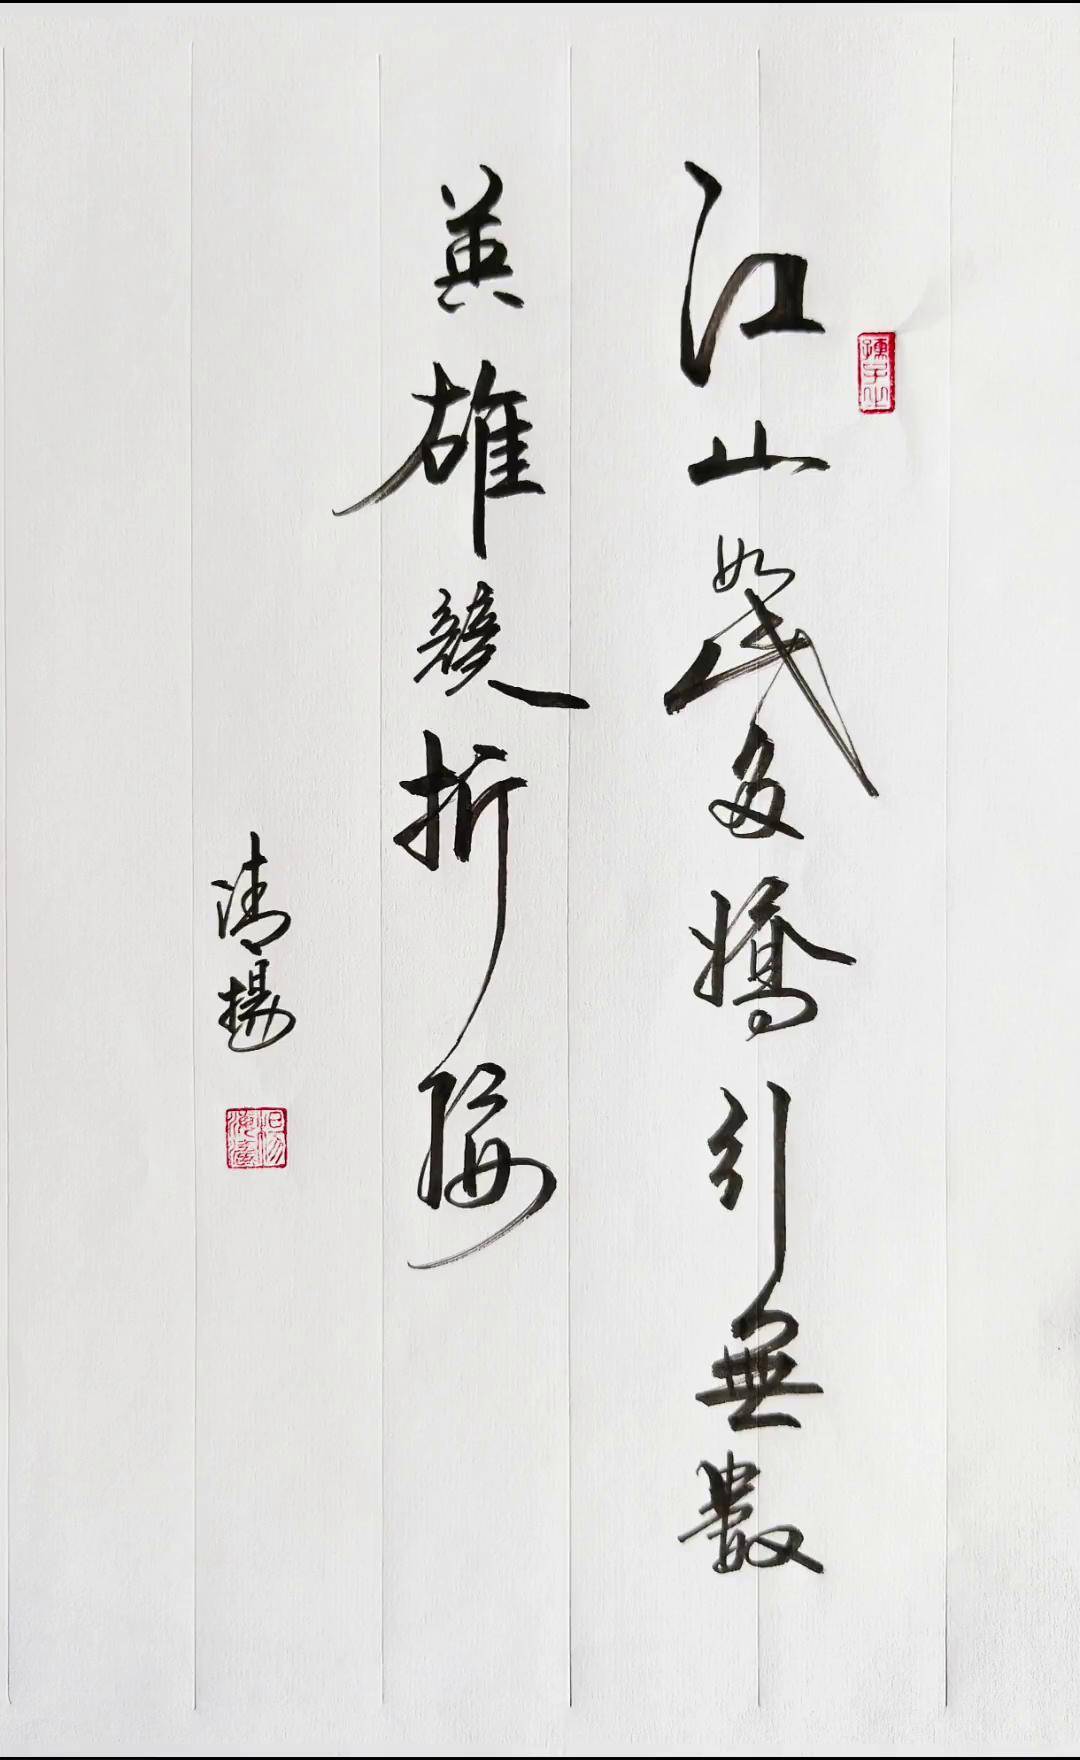 江山如此多嬌引無數
英雄競折腰
清揚